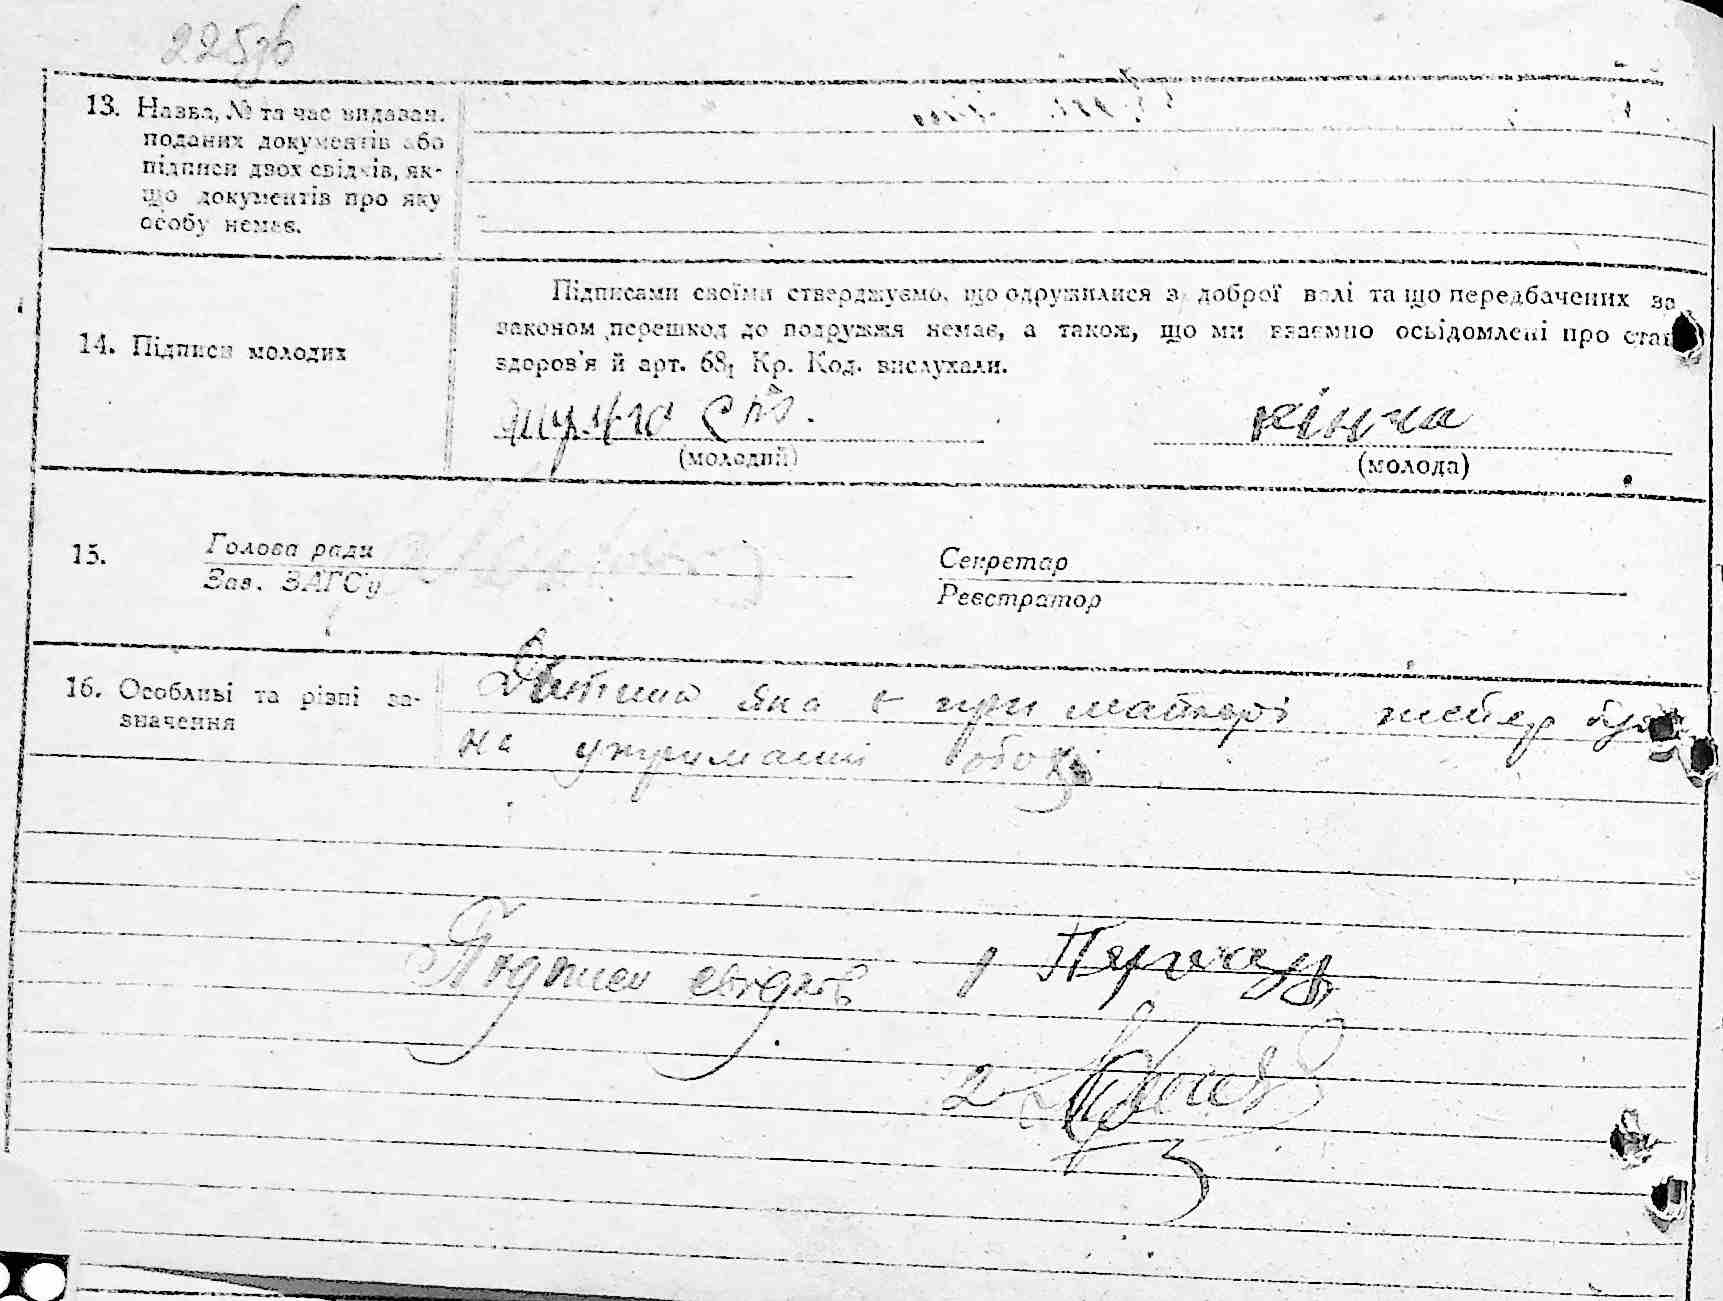 225зв
13. Назва, № та час видаван.
поданих документів або
підписи двох свідків, як-
що документів про яку
особу немає.
14. Підписи молодих
Підписами своїми стверджуємо, що одружилися з доброї волі та що передбачених за
законом перешкод до подружжя немає, а також, що ми взаємно осьвідомлені про стан
здоров'я й арт. 68, Кр. Код. вислухали.
(молодий)
(молода)
15.
Голова ради
Зав. ЗАГС'у
Секретар
Реєстратор
16. Особливі та різні за-
значення
Дитина яка є при матері тепер
на утриманні обох
Підписи свідків 1
2